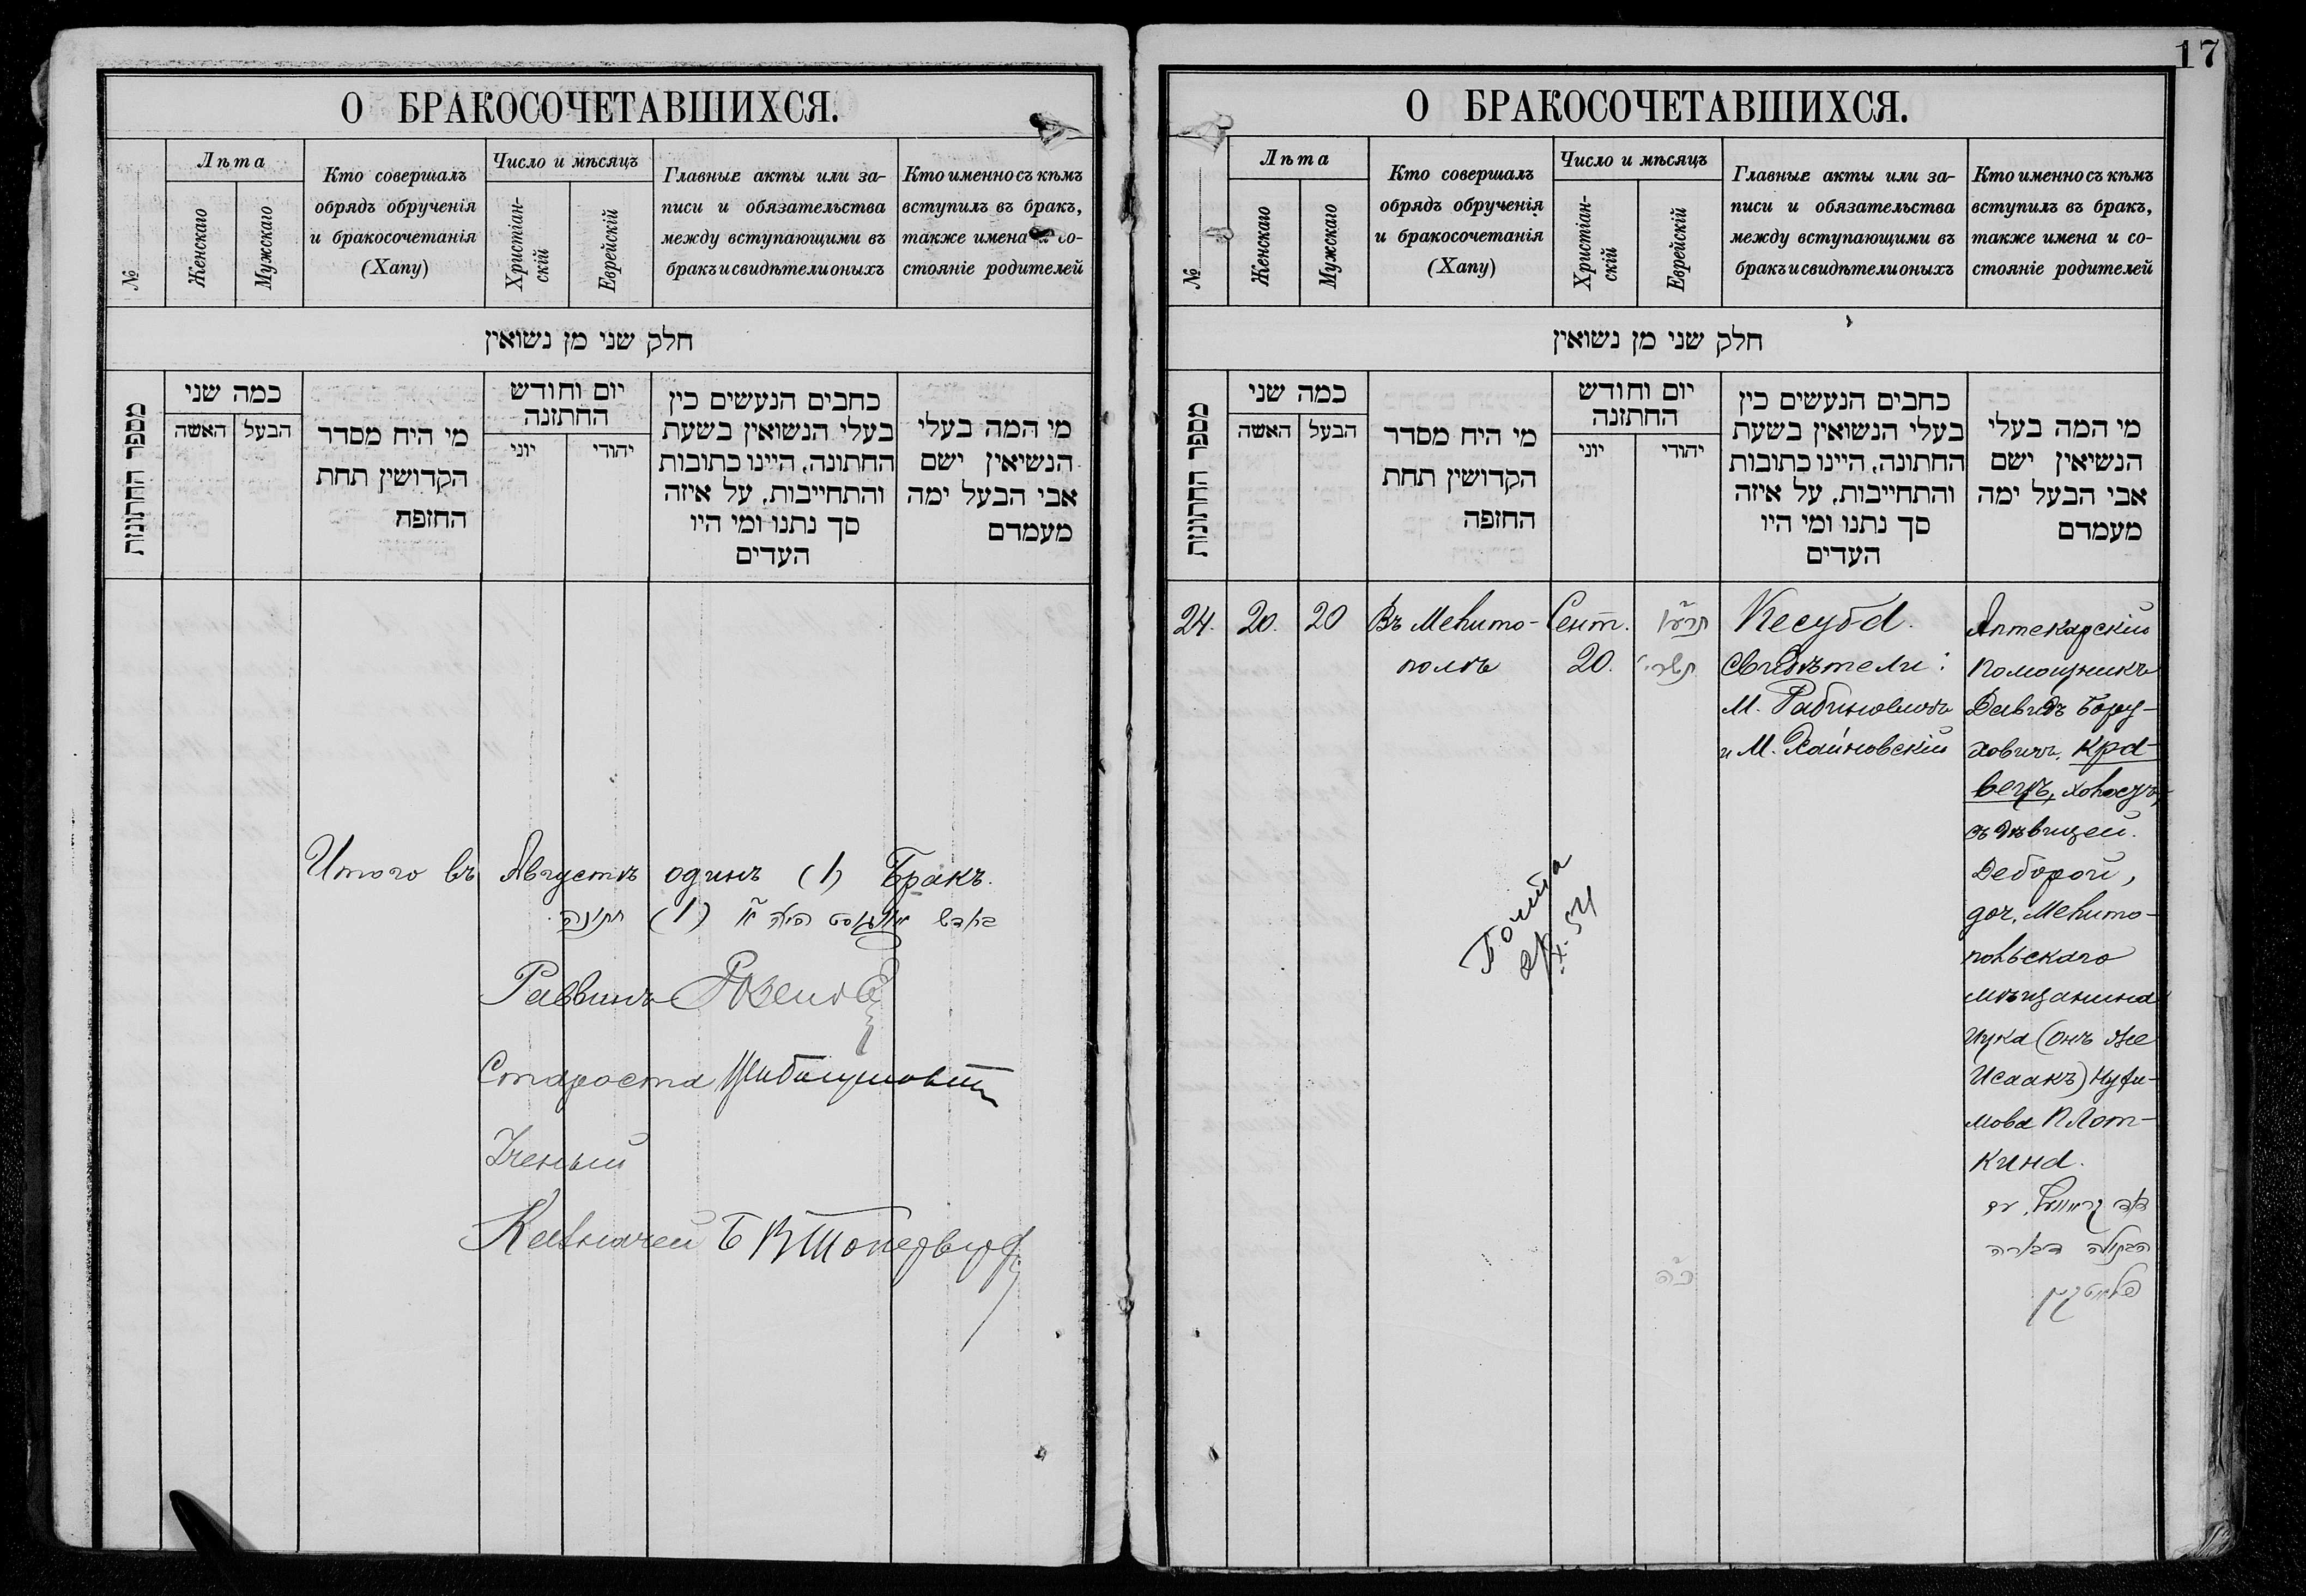 О БРАКОСОЧЕТАВШИХСЯ.
№
Лѣта
Женскаго
Мужскаго
Кто совершалъ
обрядъ обрученія
и бракосочетанія
(Хапу)
Число и мѣсяцъ
Христіан-
скій
Еврейскій
Главные акты или за-
писи и обязательства
между вступающими въ
бракъ и свидѣтели оныхъ
Кто именно съ кѣмъ
вступилъ въ бракъ,
также имена и со-
стояніе родителей
חלק שני מן נשואין
מספר החתונות
כמה שני
האשה
הבעל
מי היח מסדר
הקדושין תחת
החופה
יום וחודש
החתונה
יוני
יהודי
כחבים הנעשים כין
בעלי הנשואין בשעת
החתונה, היינו כתובות
והתחייבות, על איזה
סך נתנו ומי היו
העדים
מי המה בעלי
הנשיאין ישם
אבי הבעל ימה
מעמדם
Итого въ Августѣ одинъ (1) Бракъ.
(1) חתונה
Раввинъ
Староста
Ученый
Казначей
17
О БРАКОСОЧЕТАВШИХСЯ.
№
Лѣта
Женскаго
Мужскаго
Кто совершалъ
обрядъ обрученія
и бракосочетанія
(Хапу)
Число и мѣсяцъ
Христіан-
скій
Еврейскій
Главные акты или за-
писи и обязательства
между вступающими въ
бракъ и свидѣтели оныхъ
Кто именно съ кѣмъ
вступилъ въ бракъ,
также имена и со-
стояніе родителей
חלק שני מן נשואין
מספר החתונות
כמה שני
האשה
הבעל
מי היח מסדר
הקדושין תחת
החופה
יום וחודש
החתונה
יוני
יהודי
כחבים הנעשים כין
בעלי הנשואין בשעת
החתונה, היינו כתובות
והתחייבות, על איזה
סך נתנו ומי היו
העדים
מי המה בעלי
הנשיאין ישם
אבי הבעל ימה
מעמדם
24.
20.
20
Въ Мелито-
полѣ
Сент.
20.
Кесуба.
Свидѣтели:
М. Рабиновичъ
и М. Хайновскій
Аптекарскій
помощникъ
Давидъ Бору-
ховичъ, Кра-
вецъ, холостъ,
съ дѣвицей
Деборой,
доч. Мелито-
польскаго
мѣщанина
Ицка (онъ же
Исаакъ)
Плот-
кина.
הבתולה דבורה
פלאטקין